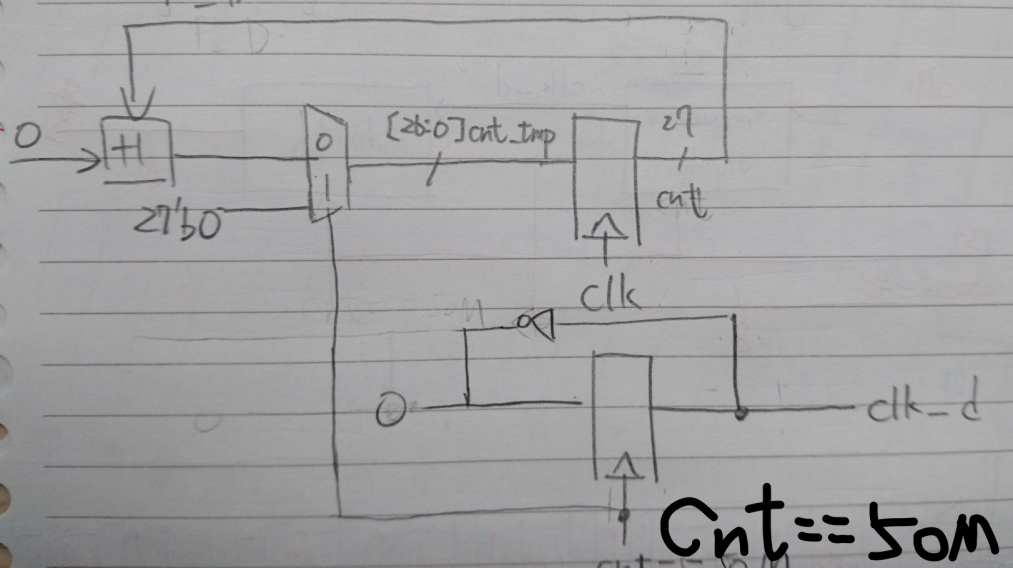 0
+1
27'b0
0
1
[26:0]cnt_tmp
27
cnt
clk
0
clk_d
Cnt==50M